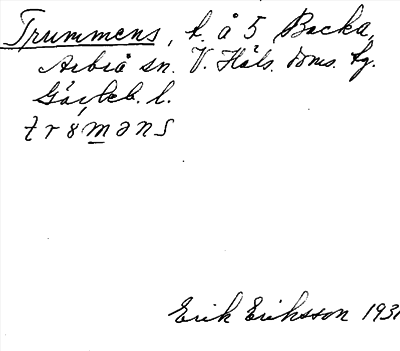 Trummens, t. å 5 Backa,
Arbrå sn. V. Häls. doms. tg.
Gävleb. l.
trɞməns
Erik Eriksson 1931